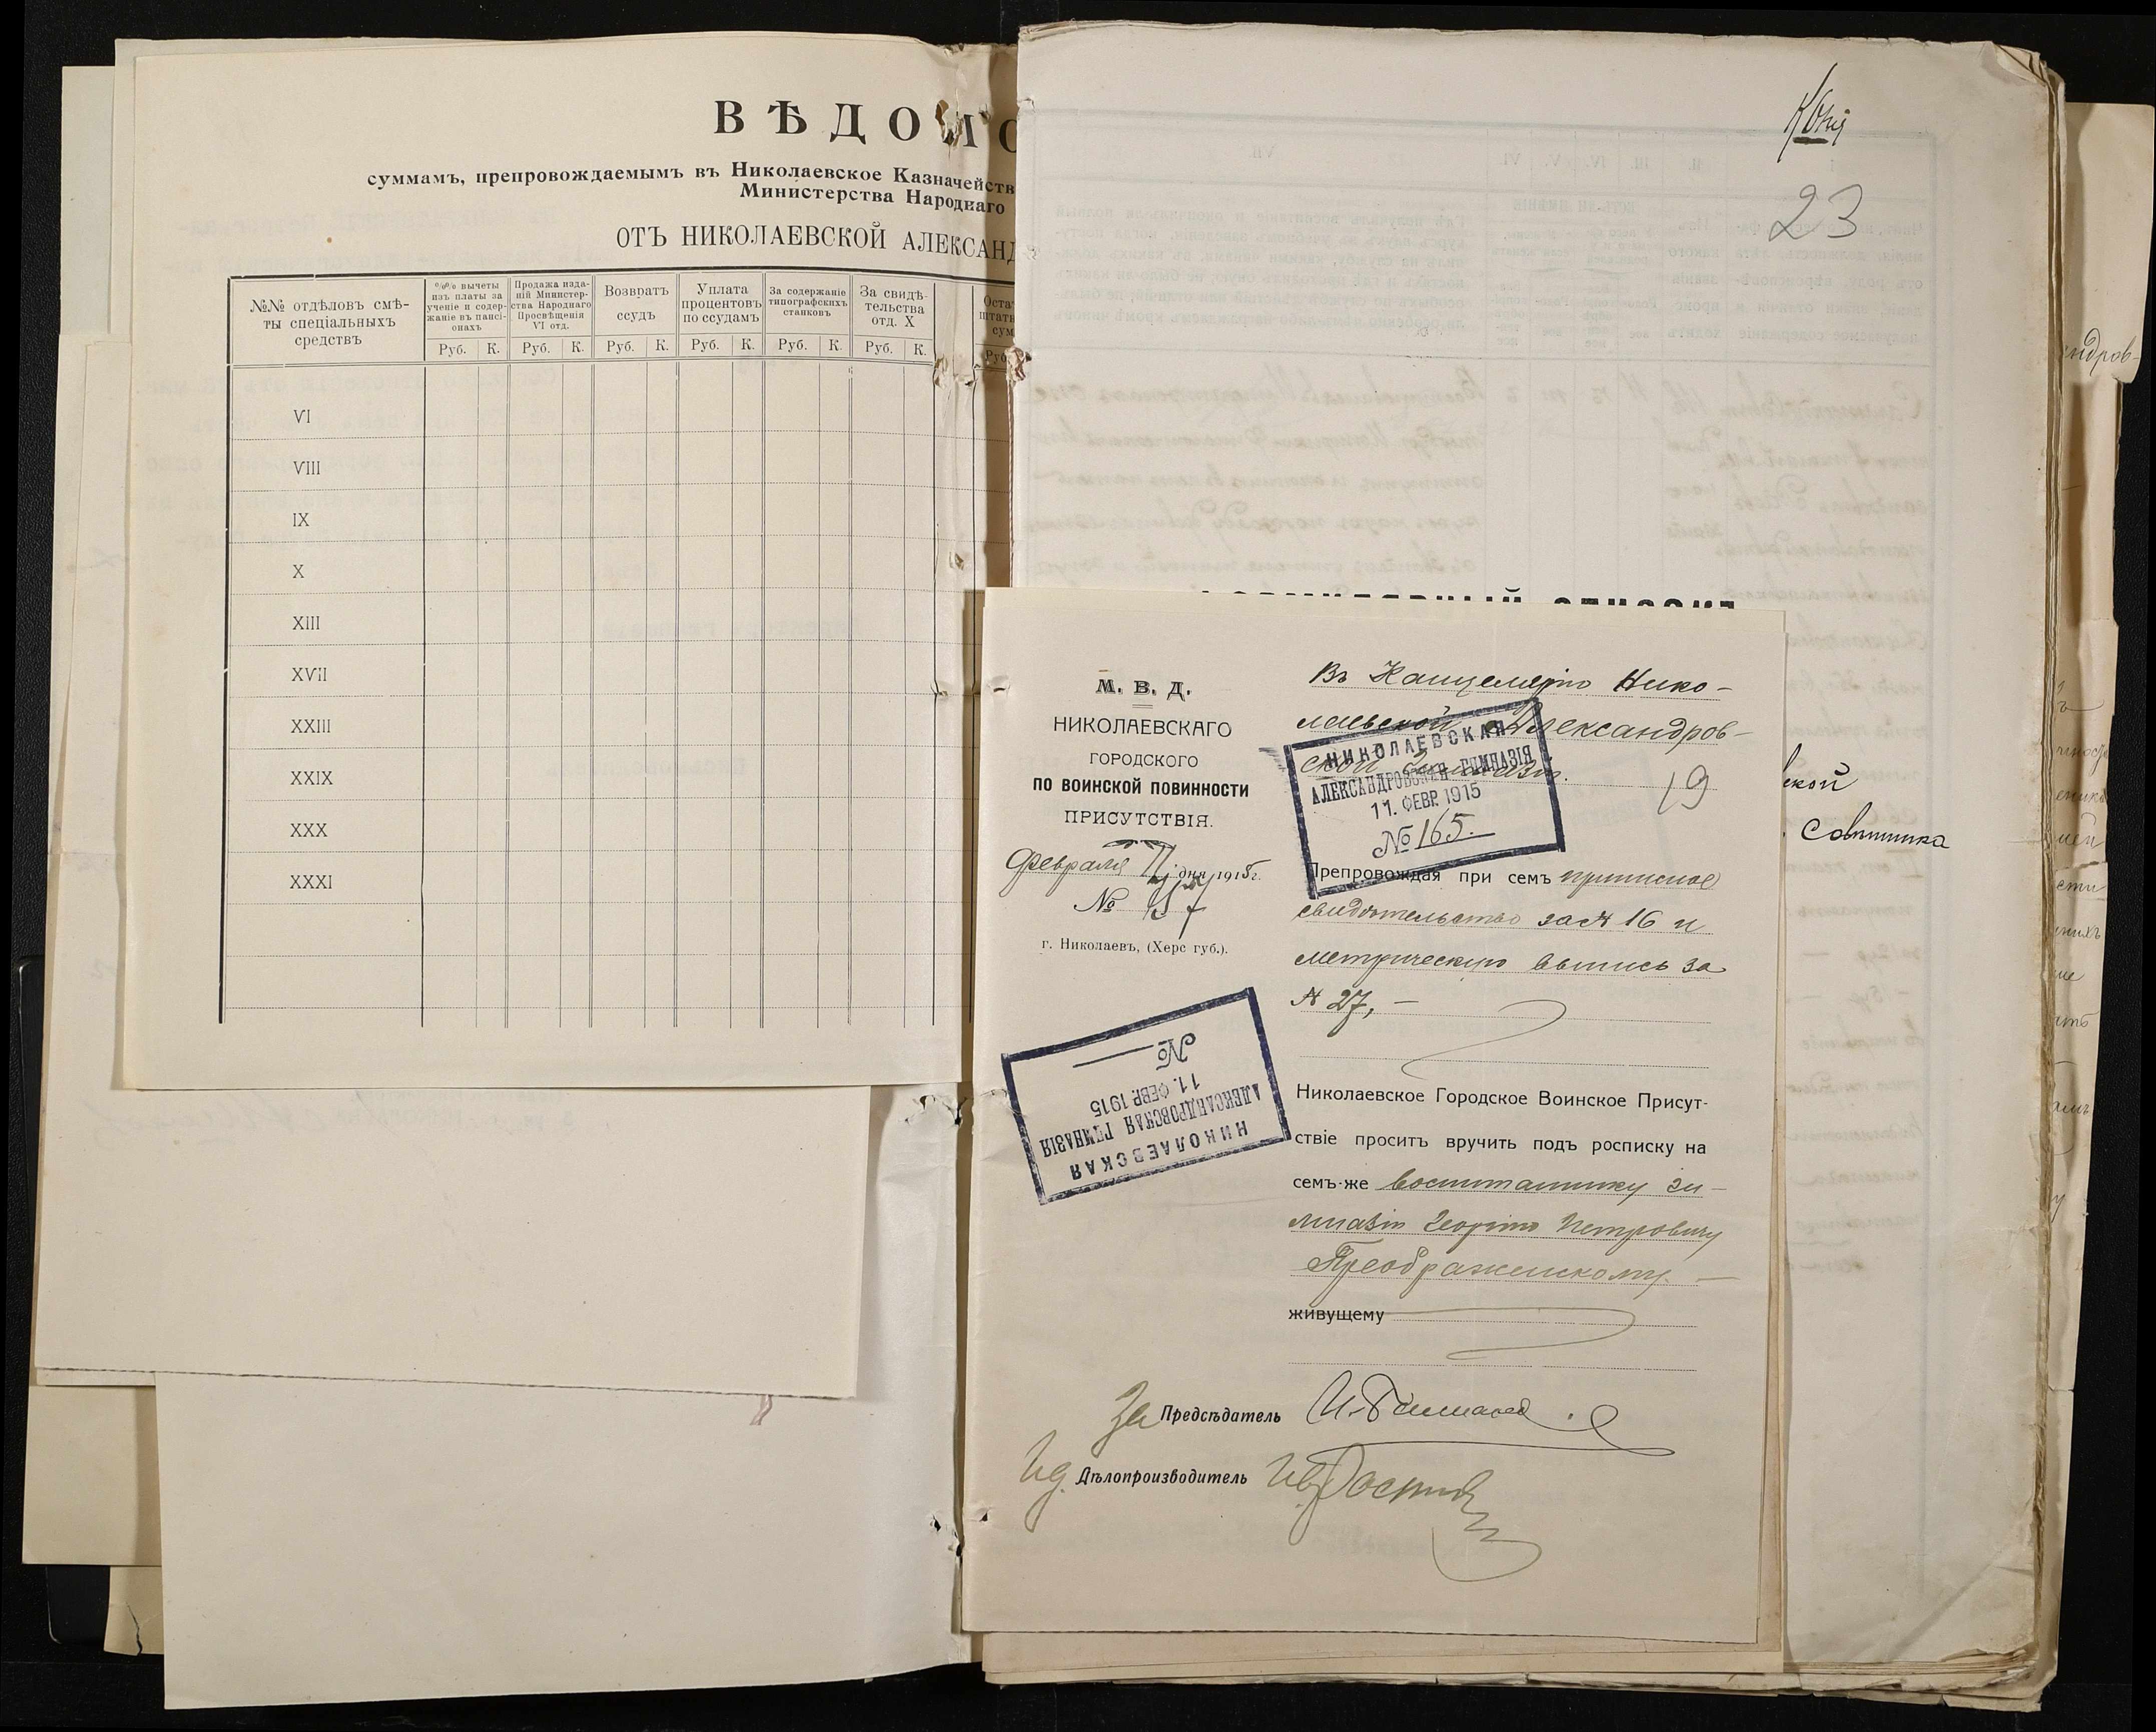 ВѢДОМО
суммамъ, препровождаемымъ въ Николаевское Казначейств
Министерства Народнаго
ОТЪ НИКОЛАЕВСКОЙ АЛЕКСАНД
№№ отдѣловъ смѣ-
ты спеціальныхъ
средствъ
%% вычеты
изъ платы за
ученіе и содер-
жаніе въ пансі-
онахъ
Продажа изда-
ній Министер-
ства Народнаго
Просвѣщенія
VI отд.
Возвратъ
ссудъ
Уплата
процентовъ
по ссудамъ
За содержаніе
типографскихъ
станковъ
За свидѣ-
тельства
отд. X
Остат
штатн
сум
Руб. К. Руб. К. Руб. К. Руб. К. Руб. К. Руб. К. Руб
VI
VIII
IX
X
XIII
XVII
XXIII
XXIX
XXX
XXXI
Копія
23
М. В. Д.
НИКОЛАЕВСКАГО
ГОРОДСКОГО
ПО ВОИНСКОЙ ПОВИННОСТИ
ПРИСУТСТВІЯ.
Февраля 11 дня 1915 г.
№ 157
г. Николаевъ, (Херс губ.).
Въ Канцелярію Нико-
лаевской Александров-
ской Гимназіи.
19
НИКОЛАЕВСКАЯ
АЛЕКСАНДРОВСКАЯ ГИМНАЗІЯ
11. ФЕВР. 1915
№ 165.
Препровождая при семъ приписное
свидѣтельство за № 16 и
метрическую выпись за
№ 27, —
НИКОЛАЕВСКАЯ
АЛЕКСАНДРОВСКАЯ ГИМНАЗІЯ
11. ФЕВР. 1915
№
Николаевское Городское Воинское Присут-
ствіе проситъ вручить подъ росписку на
семъ-же воспитаннику ги-
мназіи Георгію Петровичу
Преображенскому. —
живущему
За Предсѣдатель
Ид. Дѣлопроизводитель
ской
Совѣтника
ндров-